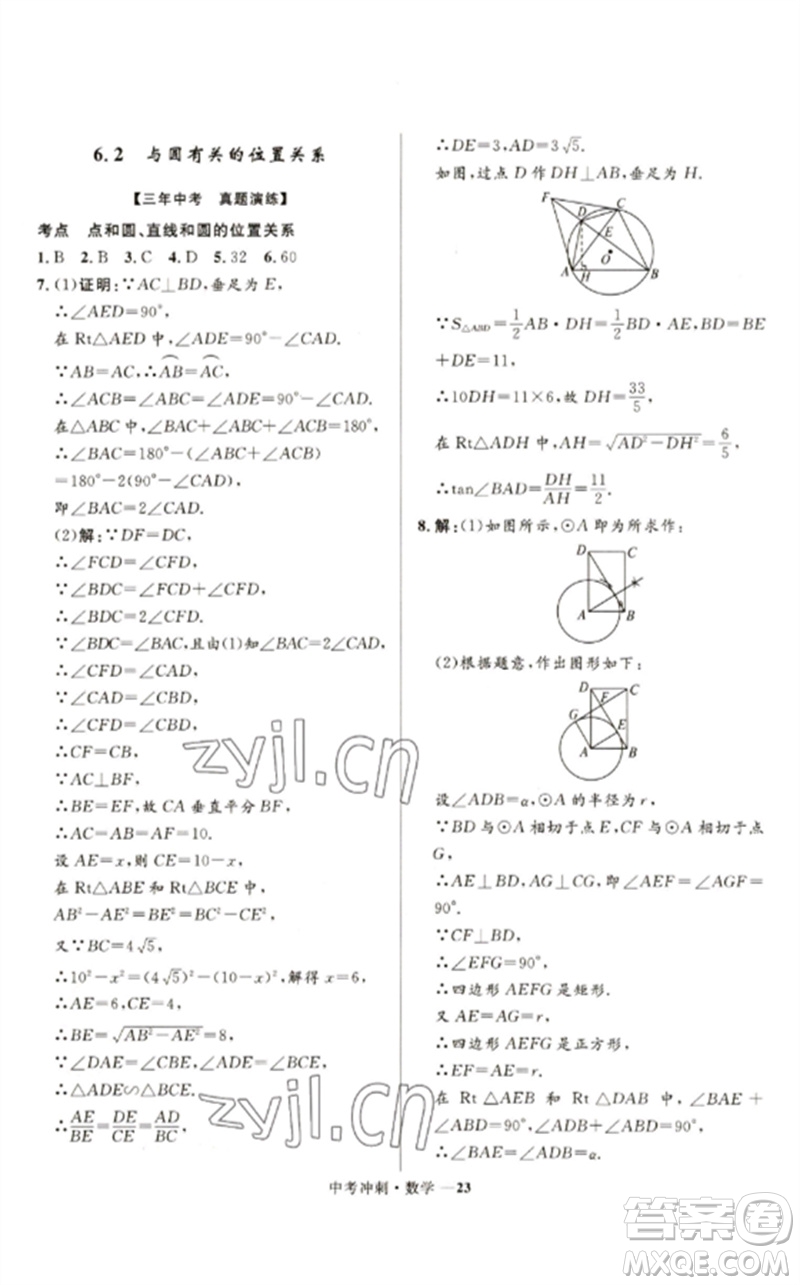 6.2 与圆有关的位置关系
【三年中考 真题演练】
考点 点和圆、直线和圆的位置关系
1.B 2.B 3.C 4.D 5.32 6.60
7.(1)证明:∵AC⊥BD,垂足为E,
∴∠AED=90°,
在Rt△AED中,∠ADE=90°-∠CAD.
∵AB=AC,∴⌒AB=⌒AC,
∴∠ACB=∠ABC=∠ADE=90°-∠CAD.
在△ABC中,∠BAC+∠ABC+∠ACB=180°,
∴∠BAC=180°-(∠ABC+∠ACB)
=180°-2(90°-∠CAD),
即∠BAC=2∠CAD.
(2)解:∵DF=DC,
∴∠FCD=∠CFD,
∴∠BDC=∠FCD+∠CFD.
∴∠BDC=2∠CFD.
∵∠BDC=∠BAC,且由(1)知∠BAC=2∠CAD,
∴∠CFD=∠CAD,
∵∠CAD=∠CBD,
∴∠CFD=∠CBD,
∴CF=CB,
∵AC⊥BF,
∴BE=EF,故CA垂直平分BF,
∴AC=AB=AF=10.
设AE=x,则CE=10-x,
在Rt△ABE和Rt△BCE中,
AB²-AE²=BE²=BC²-CE²,
又∵BC=4√5,
∴10²-x²=(4√5)²-(10-x)²,解得x=6,
∴AE=6,CE=4,
∴BE=√(AB²-AE²)=8,
∵∠DAE=∠CBE,∠ADE=∠BCE,
∴△ADE∽△BCE.
∴AE/BE=DE/CE=AD/BC,
∴DE=3,AD=3√5.
如图,过点D作DH⊥AB,垂足为H.
F
D
C
E
O
A
H
B
∵S△ABD=1/2AB·DH=1/2BD·AE,BD=BE
+DE=11,
∴10DH=11×6,故DH=33/5,
在Rt△ADH中,AH=√(AD²-DH²)=6/5,
∴tan∠BAD=DH/AH=11/2.
8.解:(1)如图所示,⊙A即为所求作:
D
C
A
B
(2)根据题意,作出图形如下:
D
C
F
G
E
A
B
设∠ADB=α,⊙A的半径为r,
∵BD与⊙A相切于点E,CF与⊙A相切于点
G,
∴AE⊥BD,AG⊥CG,即∠AEF=∠AGF=
90°.
∵CF⊥BD,
∴∠EFG=90°,
∴四边形AEFG是矩形.
又AE=AG=r,
∴四边形AEFG是正方形,
∴EF=AE=r.
在Rt△AEB和Rt△DAB中,∠BAE+
∠ABD=90°,∠ADB+∠ABD=90°,
∴∠BAE=∠ADB=α.
中考冲刺·数学—23
zyjl.cn
zyjl.cn
答案圈
MXQE.COM